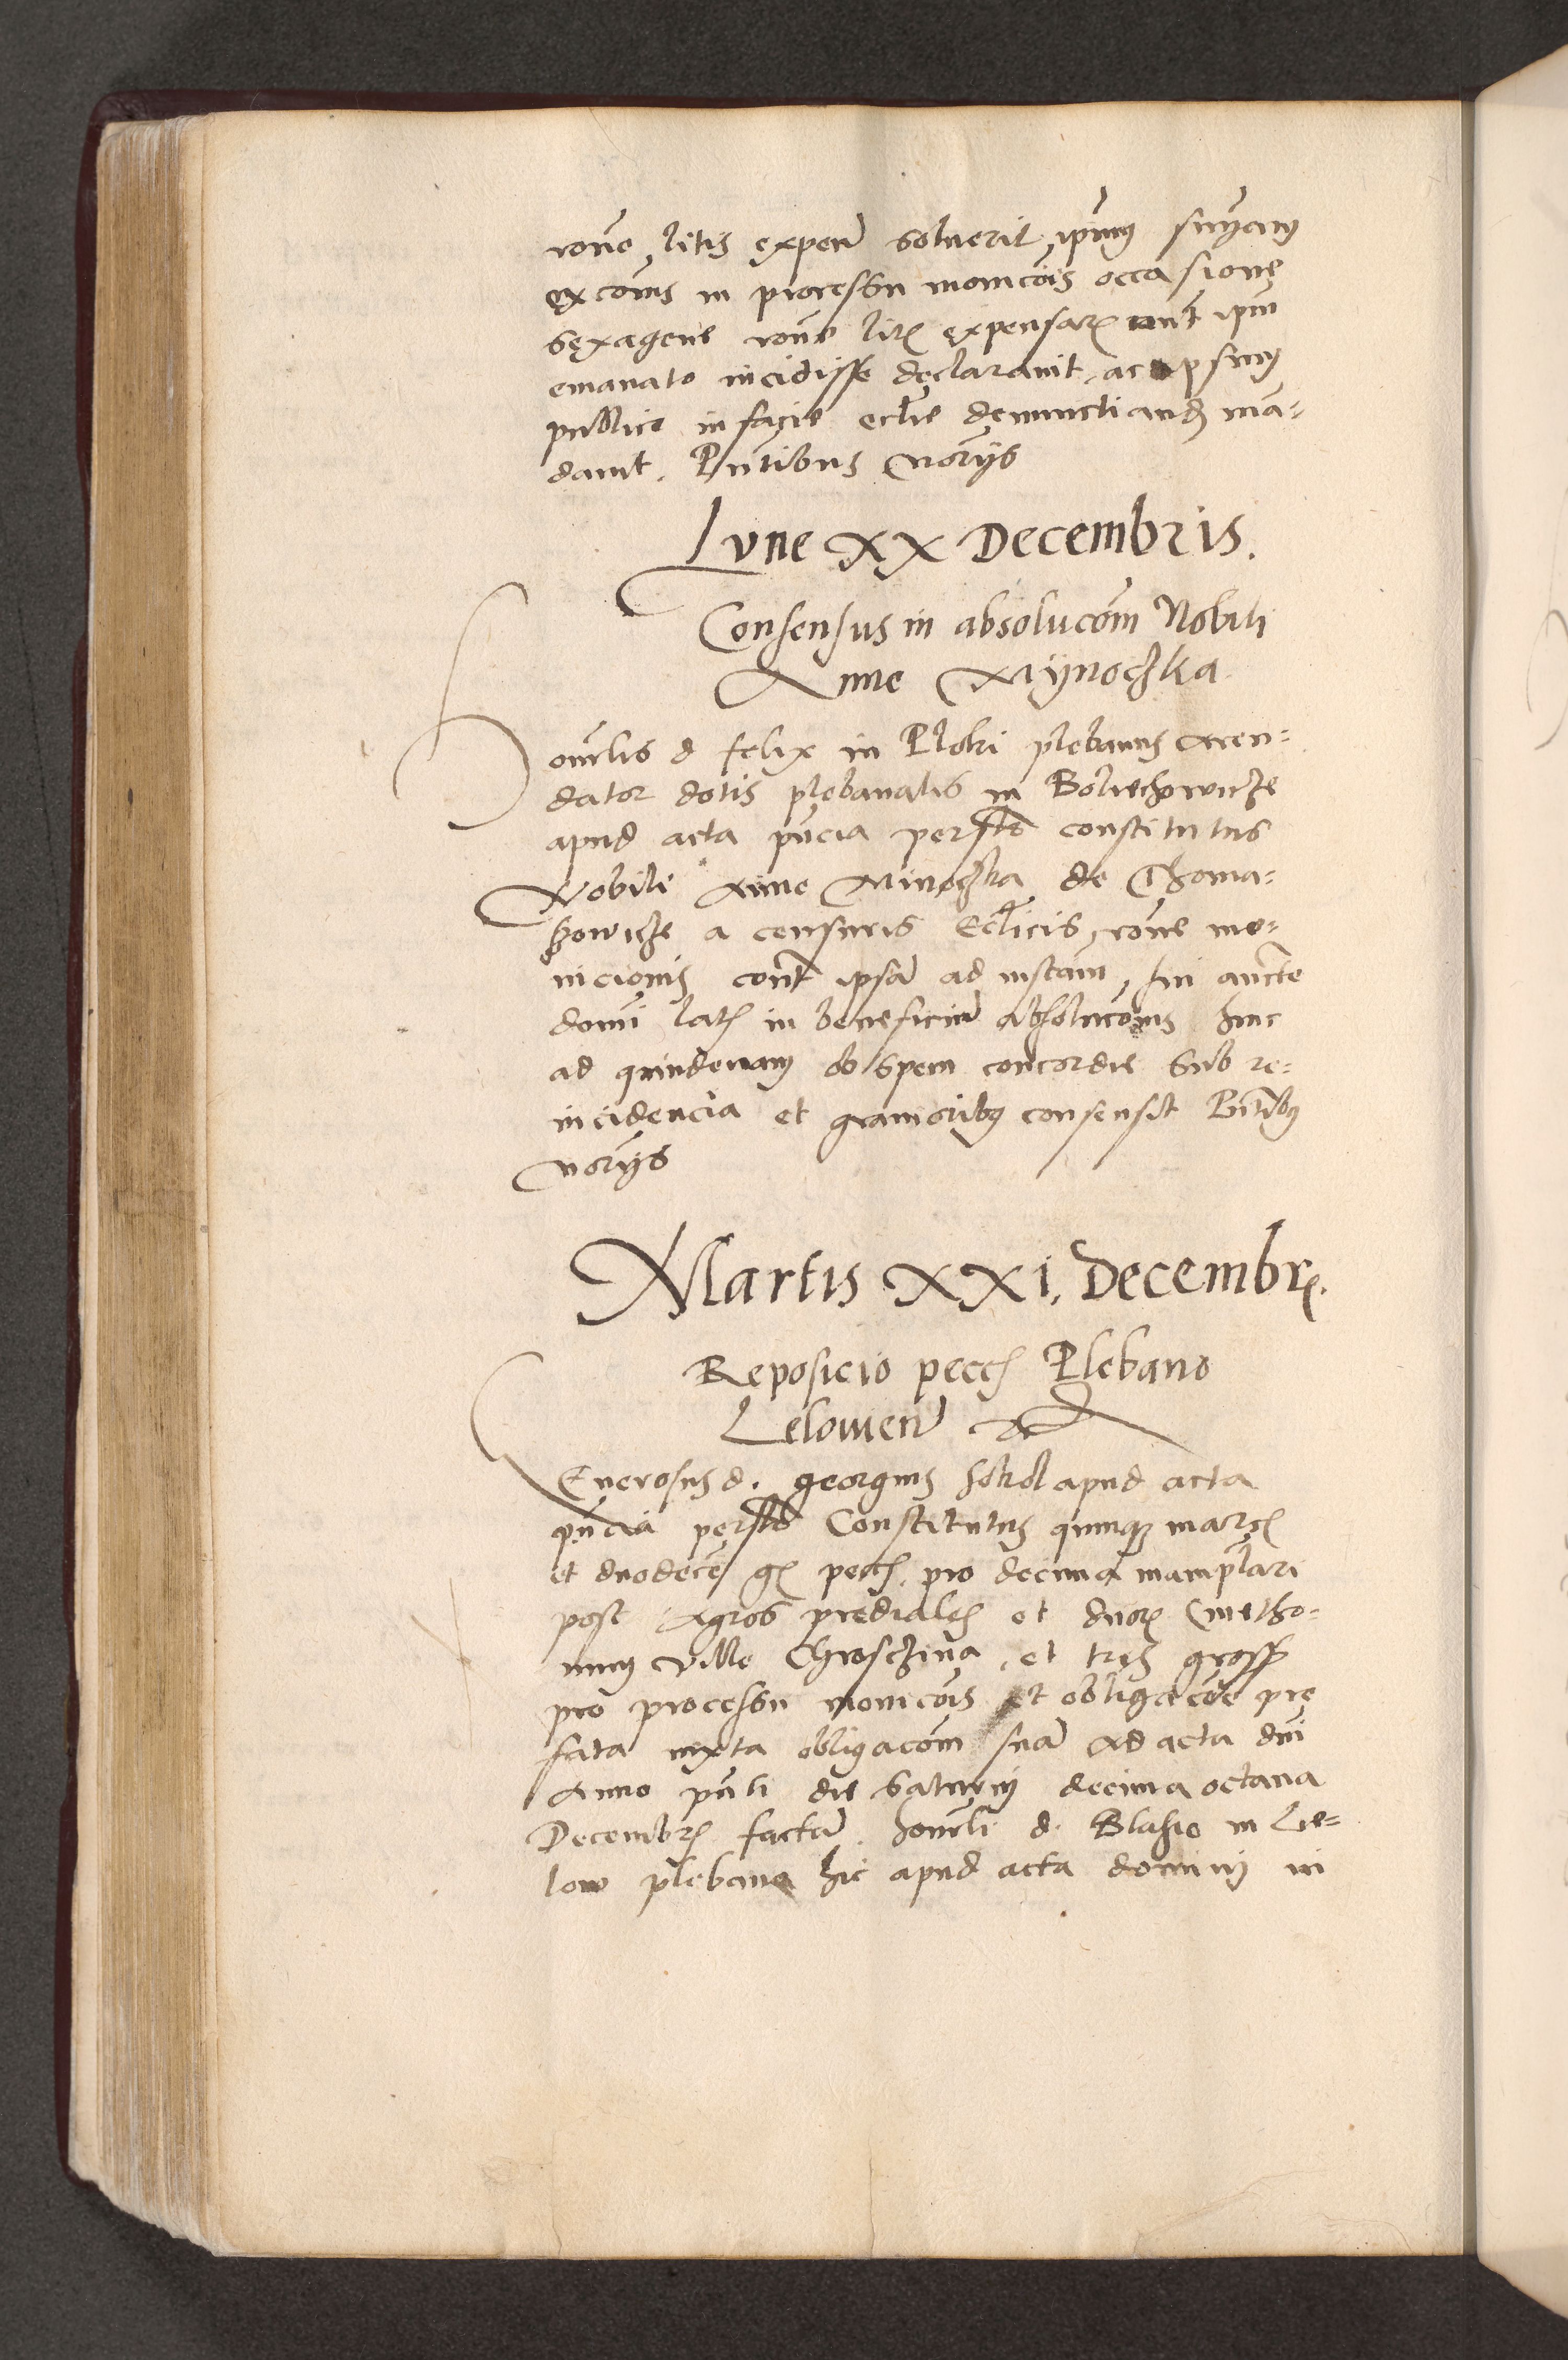 rone litis expen solverit ipsum sniam
excois in processu monicois occasione
sexagene rone litis expensarum cont ipm
emanato incidisse declaravit, ac ipsum
publice in facie ecclie denunctiand man=
davit. Pntibus Noriis
Lune XX Decembris.
Consensus in absolucom Nobili
Anne Mijnoczka
Honorabilis d Felix in Ploki plebanus Aren=
dator dotis plebanalis in Boliechowicze
apud acta pncia personaliter constitutus
Nobili Anne Minoczka de Thoma=
szowicze a censuris Ecclicis, rone mo=
nicionis cont ipsam ad instam sui aucte
domi latis in beneficium absolucois hinc
ad quindenam ob spem concordie sub re=
incidencia et gravioribus consensit Pntibus
Noriis
Martis XXI. Decembris.
Reposicio pecc Plebano
Lelovien
Generosus d. Georgius Sokol apud acta
pncia personaliter Constitutus quinque marcs
et duodecem gs pecc. pro decima manipulari
post Agros prediales et duorum Cmetho=
num ville Chroschina, et tres gross
pro processu monicois et obligacoe pre
fata iuxta obligacom suam ad acta dni
Anno pnti die Saturnij decima octava
Decembris factam. honorabili d. Blasio in Le=
low plebano hic apud acta dominij in